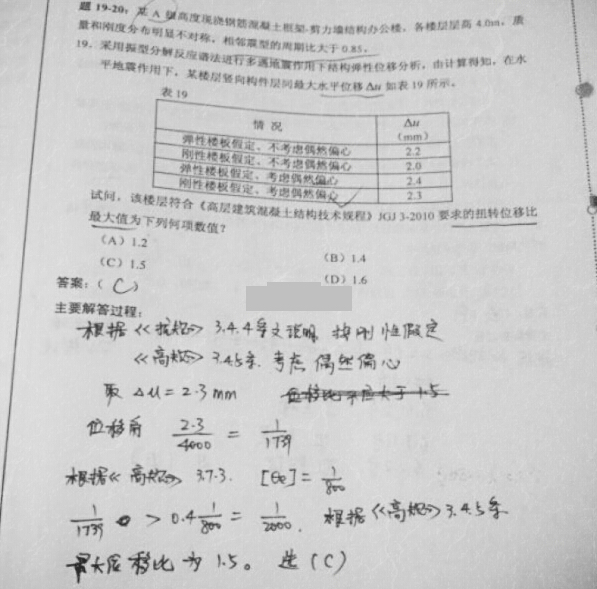 题19-20：某A级高度现浇钢筋混凝土框架-剪力墙结构办公楼，各楼层层高4.0m，质
量和刚度分布明显不对称，相邻震型的周期比大于0.85。
19．采用振型分解反应谱法进行多遇地震作用下结构弹性位移分析，由计算得知，在水
平地震作用下，某楼层竖向构件层间最大水平位移Δu如表19所示。
表19
情况 Δu (mm)
弹性楼板假定、不考虑偶然偏心 2.2
刚性楼板假定、不考虑偶然偏心 2.0
弹性楼板假定、考虑偶然偏心 2.4
刚性楼板假定、考虑偶然偏心 2.3
试问，该楼层符合《高层建筑混凝土结构技术规程》JGJ 3-2010要求的扭转位移比
最大值为下列何项数值？
（A）1.2 （B）1.4
（C）1.5 （D）1.6
答案：（C）
主要解答过程：
根据《抗规》3.4.4条文说明，按刚性假定
《高规》3.4.5条，考虑偶然偏心
取 Δu=2.3mm 位移比不应大于1.5
位移角 2.3/4000 = 1/1739
根据《高规》3.7.3. [θe]=1/800
1/1739 > 0.4 1/800 = 1/2000. 根据《高规》3.4.5条
最大位移比为1.5。选(C)